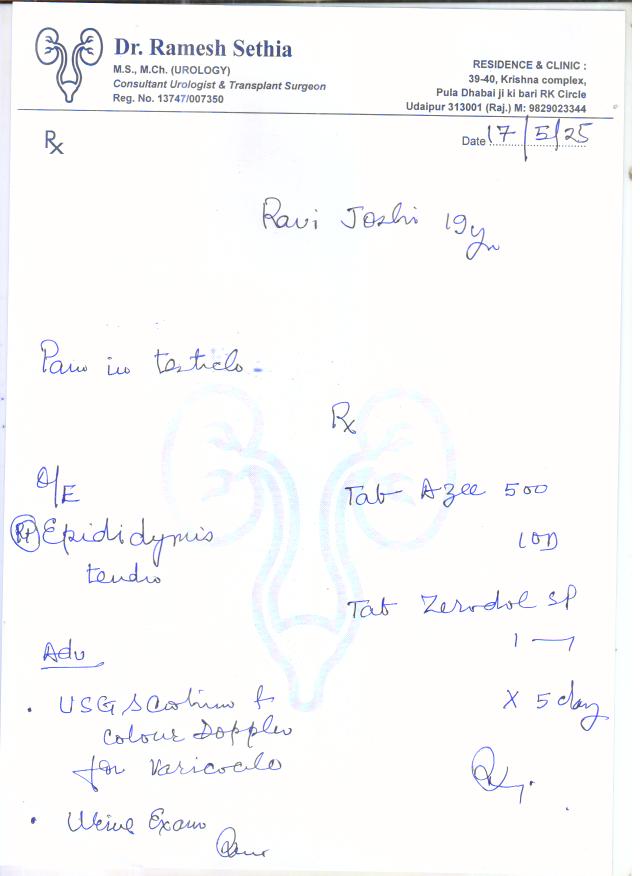 Dr. Ramesh Sethia
M.S., M.Ch. (UROLOGY)
Consultant Urologist & Transplant Surgeon
Reg. No. 13747/007350
RESIDENCE & CLINIC :
39-40, Krishna complex,
Pula Dhabai ji ki bari RK Circle
Udaipur 313001 (Raj.) M: 9829023344
Rx
Date 17/5/25
Ravi Joshi 19yr
Pain in testicle
O/E
Rt Epididymis
tender
Adv
• USG Scrotum &
colour Doppler
for varicocele
• Urine Exam
Rx
Tab Azee 500
1 OD
Tab Zerodol SP
1 — 1
X 5 day